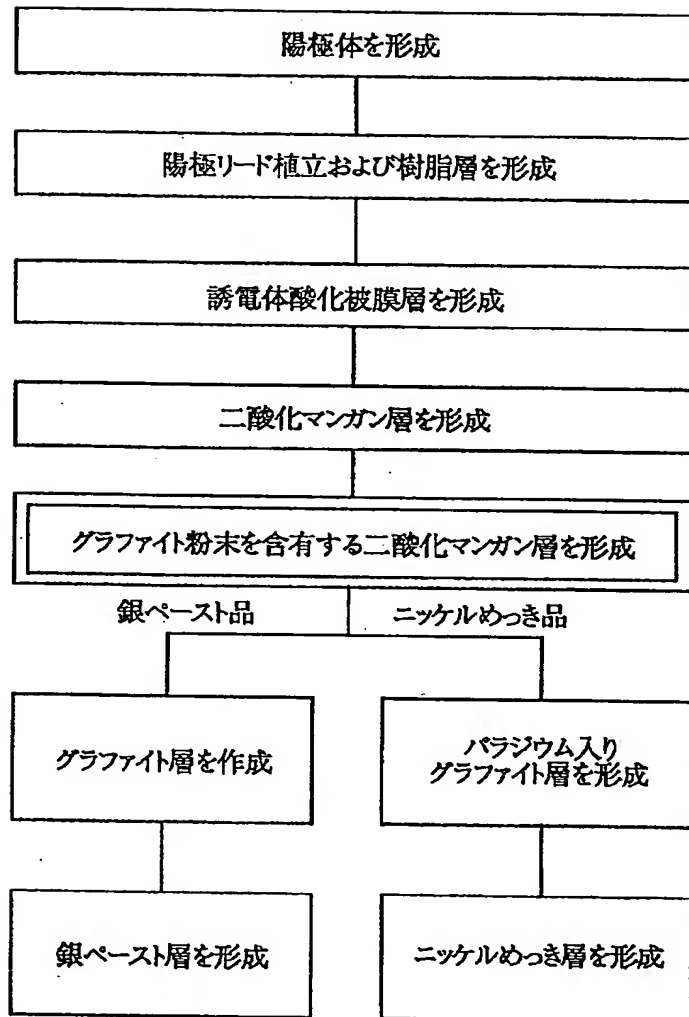 陽極体を形成
陽極リード植立および樹脂層を形成
誘電体酸化被膜層を形成
二酸化マンガン層を形成
グラファイト粉末を含有する二酸化マンガン層を形成
銀ペースト品
ニッケルめっき品
グラファイト層を作成
パラジウム入り
グラファイト層を形成
銀ペースト層を形成
ニッケルめっき層を形成